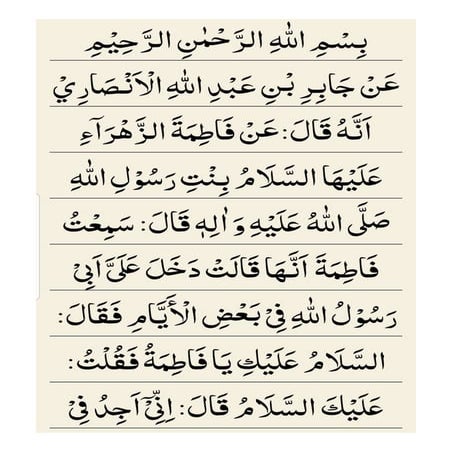 بِسْمِ اللهِ الرَّحْمٰنِ الرَّحِيْمِ
عَنْ جَابِرِ بْنِ عَبْدِ اللهِ الْاَنْصَارِيْ
اَنَّهُ قَالَ: عَنْ فَاطِمَةَ الزَّهْرَآءِ
عَلَيْهَا السَّلَامُ بِنْتِ رَسُوْلِ اللهِ
صَلَّى اللهُ عَلَيْهِ وَ اٰلِهٖ قَالَ: سَمِعْتُ
فَاطِمَةَ اَنَّهَا قَالَتْ دَخَلَ عَلَيَّ اَبِيْ
رَسُوْلُ اللهِ فِيْ بَعْضِ الْأَيَّامِ فَقَالَ:
السَّلَامُ عَلَيْكِ يَا فَاطِمَةُ فَقُلْتُ:
عَلَيْكَ السَّلَامُ قَالَ: اِنِّيْٓ اَجِدُ فِيْ